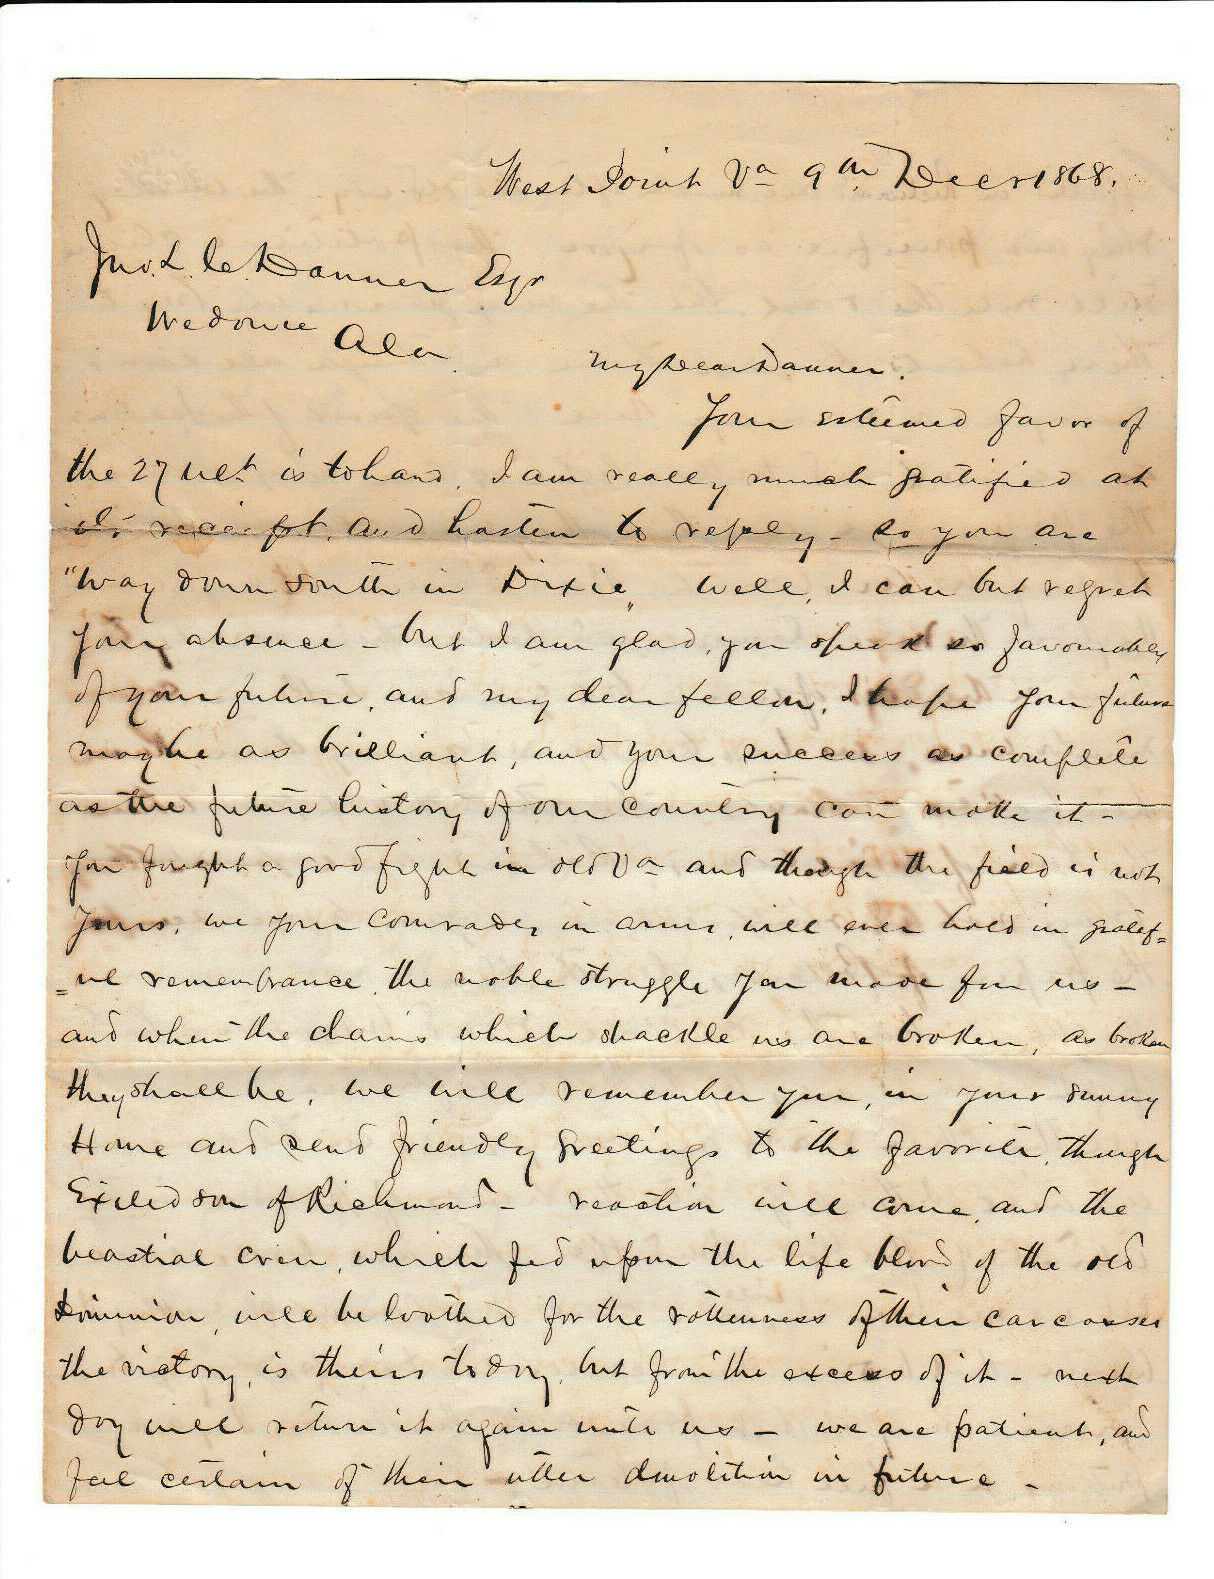 West Point Va 9th Decr 1868.
Jno. L. C. Danner Esqr
Wedowee
Ala
My Dear Danner.
Your esteemed favor of
the 27 ult is to hand. I am really much gratified at
its receipt, and hasten to reply - so you are
"way down south in Dixie" well, I can but regret
your absence - but I am glad, you speak so favourably
of your future, and my dear fellow, I hope your future
may be as brilliant, and your success as complete
as the future history of our country can make it -
you fought a good fight in old Va and though the field is not
yours, we your comrades in arms, will ever hold in gratef=
=ul remembrance the noble struggle you made for us -
and when the chains which shackle us are broken, as broken
they shall be, we will remember you, in your sunny
Home and send friendly greetings to the favorite, though
Exiled son of Richmond - reaction will come, and the
beastial crew, which fed upon the life blood of the old
Dominion, will be loathed for the rottenness of their carcasses
the victory, is theirs today, but from the excess of it - next
day will return it again unto us - we are patient, and
feel certain of their utter demolition in future -